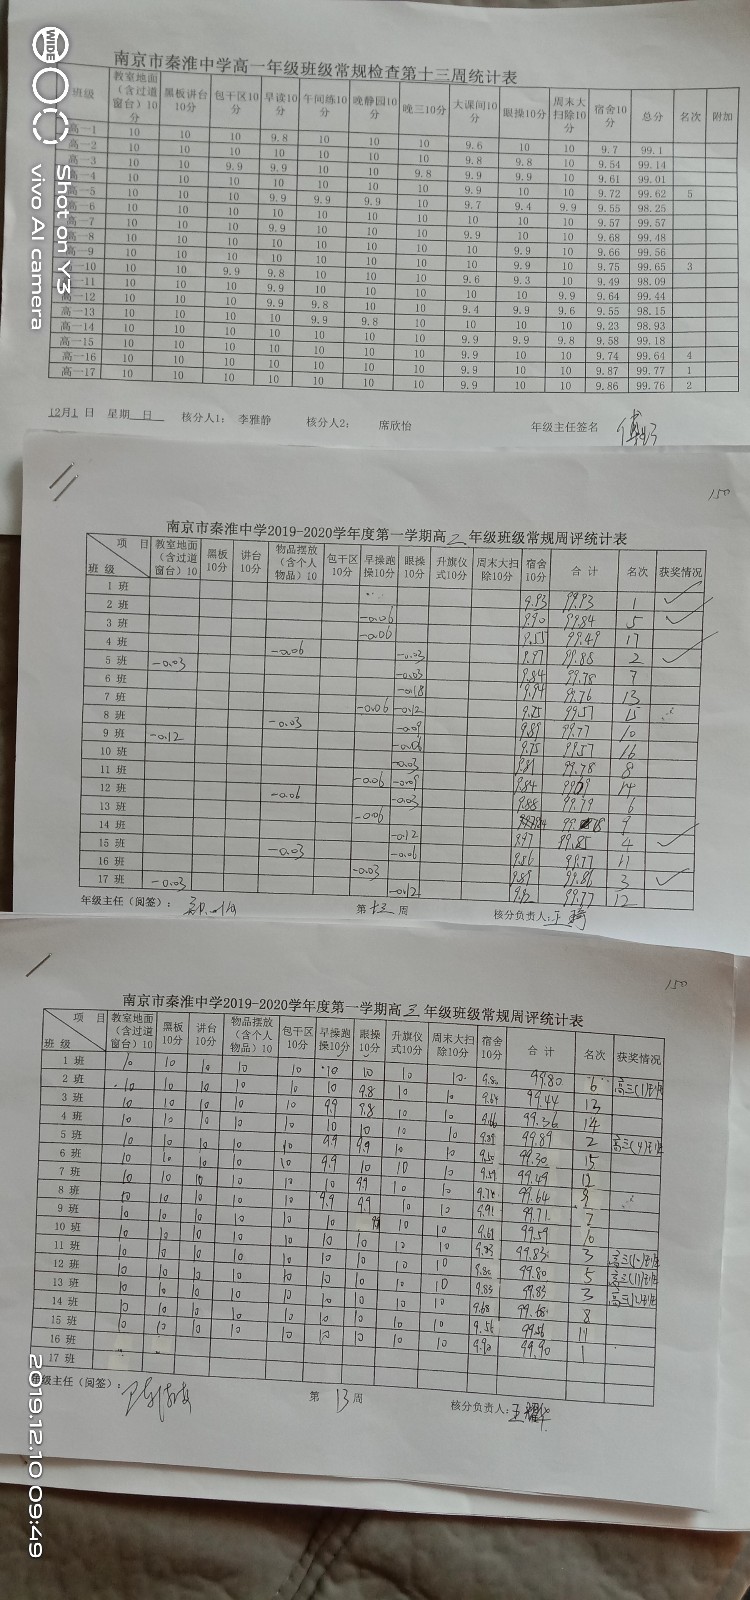 南京市秦淮中学高一年级班级常规检查第十三周统计表
班级 教室地面(含过道窗台)10分 黑板讲台10分 包干区10分 早读10分 午间练10分 晚静园10分 晚三10分 大课间10分 眼操10分 周末大扫除10分 宿舍10分 总分 名次 附加
高一1 10 10 10 9.8 10 10 10 9.6 10 10 9.7 99.1
高一2 10 10 10 10 10 10 10 9.8 9.8 10 9.54 99.14
高一3 10 10 9.9 9.9 10 10 9.8 9.9 9.9 10 9.61 99.01
高一4 10 10 10 10 10 10 10 9.9 10 10 9.72 99.62 5
高一5 10 10 10 9.9 9.9 9.9 10 9.7 9.4 9.9 9.55 98.25
高一6 10 10 10 10 10 10 10 10 10 10 9.57 99.57
高一7 10 10 10 9.9 10 10 10 9.9 10 10 9.68 99.48
高一8 10 10 10 10 10 10 10 10 9.9 10 9.66 99.56
高一9 10 10 10 10 10 10 10 10 9.9 10 9.75 99.65 3
高一10 10 10 9.9 9.8 10 10 10 9.6 9.3 10 9.49 98.09
高一11 10 10 10 9.9 10 10 10 10 10 9.9 9.64 99.44
高一12 10 10 10 9.9 9.8 10 10 9.4 9.9 9.6 9.55 98.15
高一13 10 10 10 10 9.9 9.8 10 10 10 10 9.23 98.93
高一14 10 10 10 10 10 10 10 9.9 9.9 9.8 9.58 99.18
高一15 10 10 10 10 10 10 10 9.9 10 10 9.74 99.64 4
高一16 10 10 10 10 10 10 10 9.9 10 10 9.87 99.77 1
高一17 10 10 10 10 10 10 10 9.9 10 10 9.86 99.76 2
12月1 日 星期 日 核分人1: 李雅静 核分人2: 席欣怡 年级主任签名
150
南京市秦淮中学2019-2020学年度第一学期高二年级班级常规周评统计表
项 目 班 级 教室地面(含过道窗台)10 黑板10分 讲台10分 物品摆放(含个人物品)10 包干区10分 早操跑操10分 眼操10分 升旗仪式10分 周末大扫除10分 宿舍10分 合 计 名次 获奖情况
1 班 9.93 99.93 1 ✓
2 班 -0.06 9.90 99.84 5 ✓
3 班 -0.06 9.55 99.49 17
4 班 -0.06 -0.03 9.97 99.88 2 ✓
5 班 -0.03 -0.03 9.84 99.78 7
6 班 -0.18 9.94 99.76 13
7 班 -0.06 -0.12 9.75 99.57 15
8 班 -0.03 -0.09 9.89 99.77 10
9 班 -0.12 -0.06 9.75 99.57 16
10 班 -0.03 9.81 99.78 8
11 班 -0.06 -0.09 9.84 14
12 班 -0.06 -0.03 9.88 99.79 6
13 班 -0.06 9
14 班 -0.12 9.97 99.85 4 ✓
15 班 -0.03 -0.06 9.86 99.77 11
16 班 -0.03 9.89 99.86 3 ✓
17 班 -0.03 -0.12 9.92 99.77 12
年级主任(阅签): 第 十三 周 核分负责人: 王琦
150
南京市秦淮中学2019-2020学年度第一学期高三年级班级常规周评统计表
项 目 班 级 教室地面(含过道窗台)10 黑板10分 讲台10分 物品摆放(含个人物品)10 包干区10分 早操跑操10分 眼操10分 升旗仪式10分 周末大扫除10分 宿舍10分 合 计 名次 获奖情况
1 班 10 10 10 10 10 10 10 10 10 9.80 99.80 6 高三(1)班
2 班 10 10 10 10 10 10 9.8 10 10 9.64 99.44 13
3 班 10 10 10 10 10 9.9 9.8 10 10 9.66 99.36 14
4 班 10 10 10 10 10 10 10 10 10 9.89 99.89 2 高三(4)班
5 班 10 10 10 10 10 9.9 9.9 10 10 9.50 99.30 15
6 班 10 10 10 10 10 9.9 10 10 10 9.49 99.49 12
7 班 10 10 10 10 10 10 9.9 10 10 9.74 99.64 9
8 班 10 10 10 10 10 9.9 9.9 10 10 9.91 99.71 7
9 班 10 10 10 10 10 10 9.9 10 10 9.69 99.59 10
10 班 10 10 10 10 10 10 10 10 10 9.83 99.83 3 高三(10)班
11 班 10 10 10 10 10 10 10 10 10 9.80 99.80 5 高三(11)班
12 班 10 10 10 10 10 10 10 10 10 9.83 99.83 3 高三12班
13 班 10 10 10 10 10 10 10 10 10 9.68 99.68 8
14 班 10 10 10 10 10 10 10 10 10 9.56 99.56 11
15 班 10 10 10 10 10 10 10 10 10 9.90 99.90 1
16 班
17 班
年级主任(阅签): 第 13 周 核分负责人: 王耀华
WIDE
Shot on Y3
vivo AI camera
2019.12.10 09:49